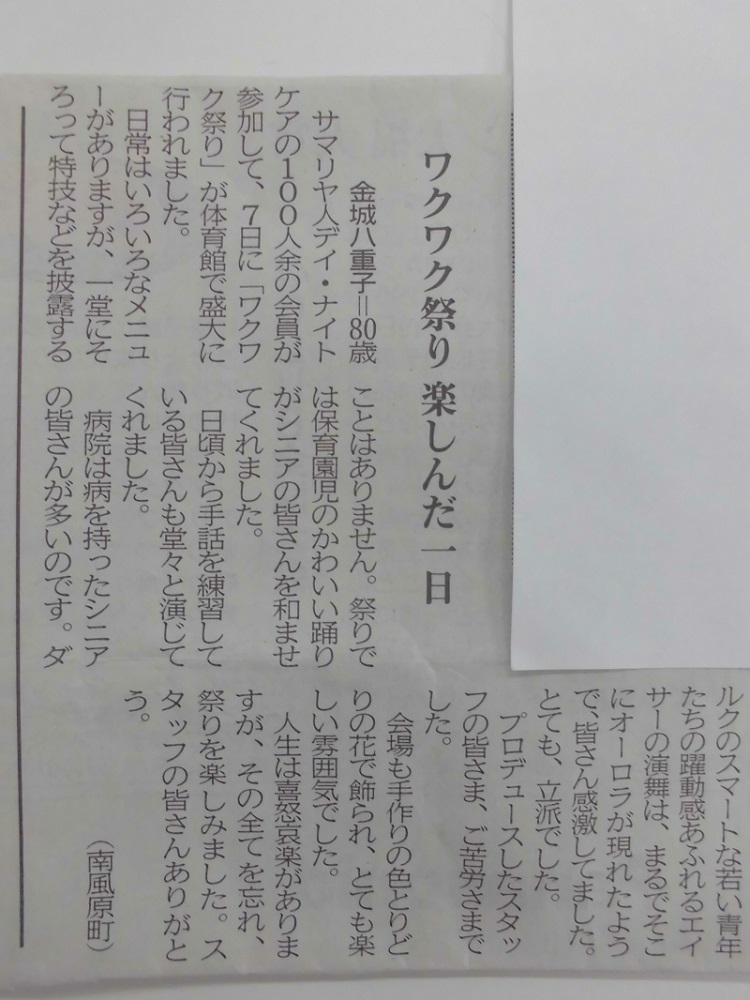 ワクワク祭り 楽しんだ一日
金城八重子＝80歳
サマリヤ人デイ・ナイト
ケアの１００人余の会員が
参加して、７日に「ワクワ
ク祭り」が体育館で盛大に
行われました。
日常はいろいろなメニュ
ーがありますが、一堂にそ
ろって特技などを披露する
ことはありません。祭りで
は保育園児のかわいい踊り
がシニアの皆さんを和ませ
てくれました。
日頃から手話を練習して
いる皆さんも堂々と演じて
くれました。
病院は病を持ったシニア
の皆さんが多いのです。ダ
ルクのスマートな若い青年
たちの躍動感あふれるエイ
サーの演舞は、まるでそこ
にオーロラが現れたよう
で、皆さん感激してました。
とても、立派でした。
プロデュースしたスタッ
フの皆さま、ご苦労さまで
した。
会場も手作りの色とりど
りの花で飾られ、とても楽
しい雰囲気でした。
人生は喜怒哀楽がありま
すが、その全てを忘れ、
祭りを楽しみました。ス
タッフの皆さんありがと
う。
（南風原町）